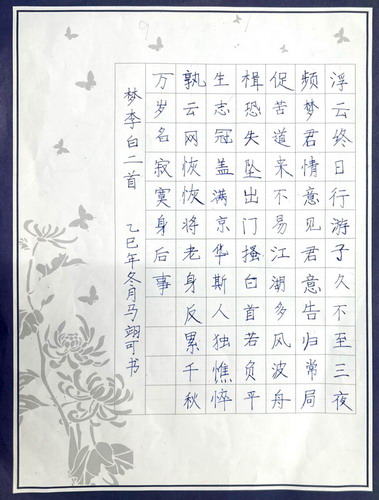 浮云终日行游子久不至三夜
频梦君情意见君意告归常局
促苦道来不易江湖多风波舟
楫恐失坠出门搔白首若负平
生志冠盖满京华斯人独憔悴
孰云网恢恢将老身反累千秋
万岁名寂寞身后事
梦李白二首 乙巳年冬月马翊可书